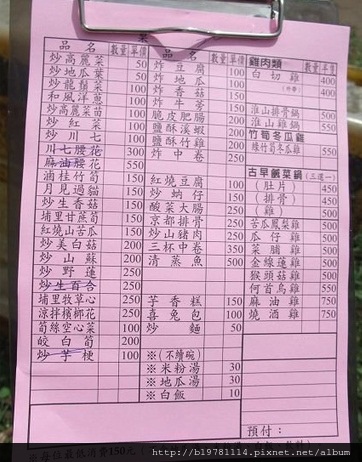 品名 數量 單價
炒高麗菜 50
炒地瓜葉 50
炒龍鬚菜 100
和風洋蔥 100
炒高麗菜苗 100
炒紅菜 100
炒川七 100
川七腰花 300
麻油腰花 550
滷桂竹筍 150
月見過貓 150
炒生香菇 150
埔里甘蔗筍 150
紅燒山苦瓜 150
炒美白菇 200
炒山蘇 200
炒野蓮 250
炒生百合 250
埔里牧草心 250
涼拌檳榔花 250
筍絲空心菜 100
皎白筍 200
炒芋梗 100
品名 數量 單價
炸豆腐 100
炸地瓜 100
炸香菇 150
炸牛蒡 150
脆皮肥腸 200
鹽酥溪蝦 200
鹽酥竹雞 200
炸中卷 250
紅燒豆腐 100
炒蚋仔 150
酸菜大腸 150
京都排骨 150
炒山豬肉 150
三杯中卷 350
清蒸魚 500
芋香糕 150
喜兔包 100
炒麵 50
※(不續碗)
※米粉湯 30
※地瓜湯 30
※白飯 10
雞肉類 數量 單價
白切雞 400
400
淮山排骨鍋 500
淮山雞鍋 550
竹筍冬瓜雞
綠竹筍冬瓜雞 550
古早飯菜鍋(三選一)
(肚片) 450
(排骨) 450
(雞) 500
苦瓜鳳梨雞 500
瓜仔雞 500
菜脯雞 500
金線蓮雞 500
猴頭菇雞 500
何首烏雞 550
麻油雞 750
燒酒雞 750
預付:
※每位最低消費150元
http://b19781114.pixnet.net/album